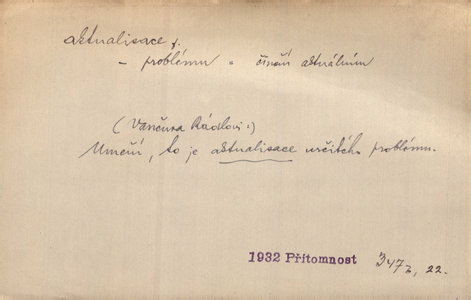 aktualisace, f.
– problému = činění aktuálním
(Vančura Rádlovi:)
Umění, to je aktualisace určitého problému.
1932 Přítomnost 347, 22.